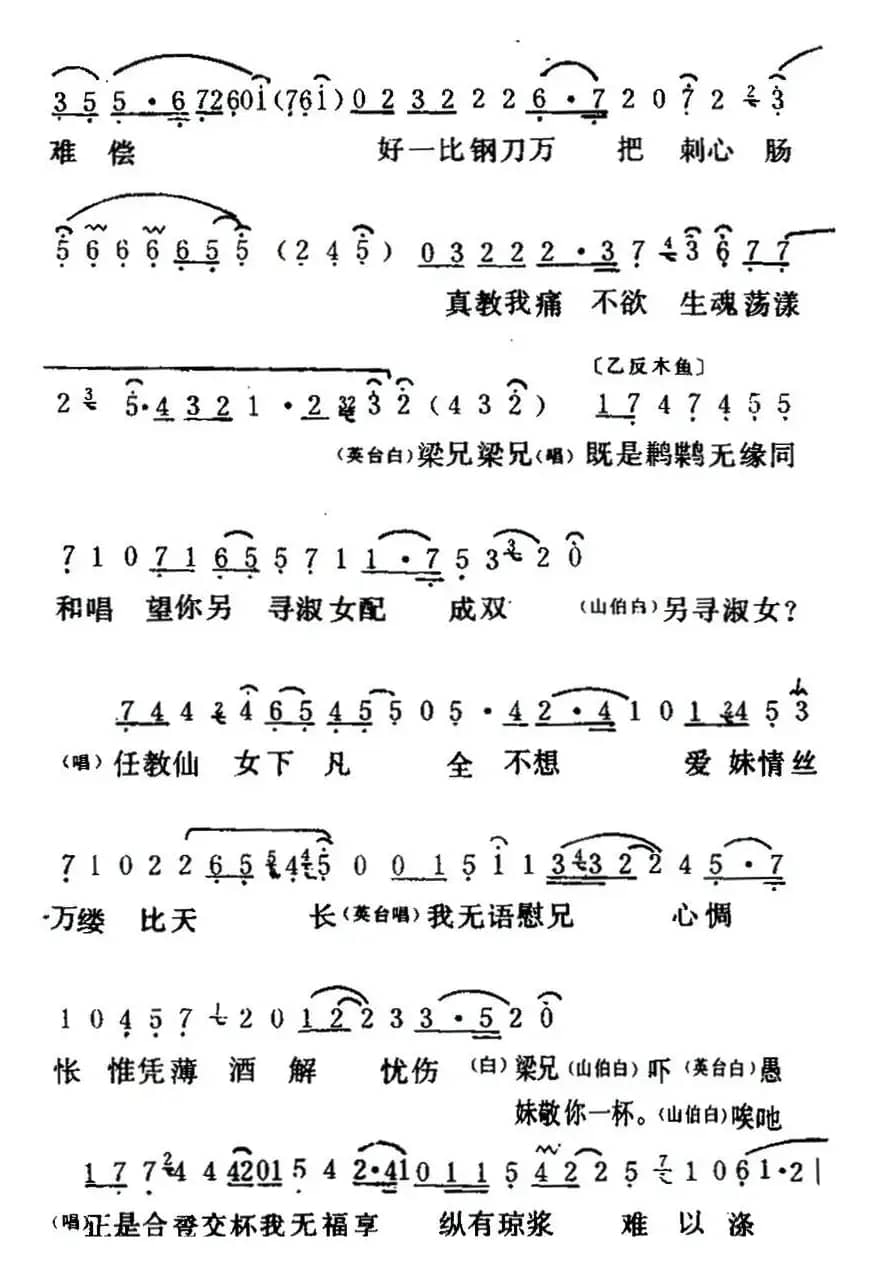 3 5 5 · 6 7 2 6 0 i ( 7 6 i ) 0 2 3 2 2 2 6 · 7 2 0 7 2 2 3
难 偿 好一比钢刀万 把 刺心 肠
5 6 6 6 6 5 5 ( 2 4 5 ) 0 3 2 2 2 2 · 3 7 4 3 6 7 7
真教我痛 不欲 生魂荡漾
2 3 5 · 4 3 2 1 · 2 32 3 2 ( 4 3 2 ) 〔乙反木鱼〕 1 7 4 7 4 5 5
(英台白)梁兄梁兄(唱)既是鹣鹣无缘同
7 1 0 7 1 6 5 5 7 1 1 · 7 5 3 3 2 0
和唱 望你另 寻淑女配 成双 (山伯白)另寻淑女?
7 4 4 2 4 6 5 4 5 5 0 5 · 4 2 · 4 1 0 1 2 4 5 3
(唱)任教仙 女下 凡 全 不想 爱 妹情丝
7 1 0 2 2 6 5 5 4 4 5 0 0 1 5 i 1 3 4 3 2 2 4 5 · 7
万缕 比天 长(英台唱)我无语慰兄 心惆
1 0 4 5 7 1 2 0 1 2 2 3 3 · 5 2 0
怅 惟凭薄 酒 解 忧伤 (白)梁兄(山伯白)吓(英台白)愚
妹敬你一杯。(山伯白)唉吔
1 7 7 2 4 4 4 2 0 1 5 4 2 · 4 1 0 1 1 5 4 2 2 5 7 1 0 6 1 · 2 |
(唱)正是合卺交杯我无福享 纵有琼浆 难 以 涤